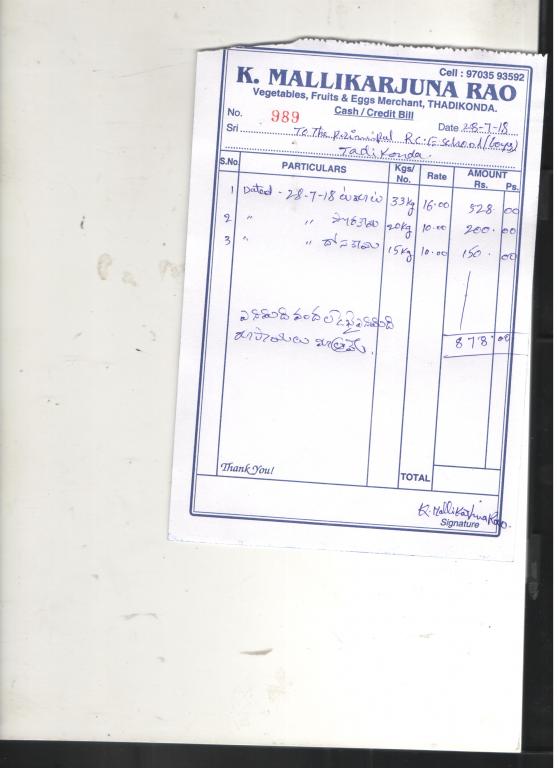 Cell : 97035 93592
K. MALLIKARJUNA RAO
Vegetables, Fruits & Eggs Merchant, THADIKONDA.
Cash / Credit Bill
No. 989 Date 28-7-18
Sri To The principal R.C.E School (boys)
Tadikonda.
S.No. PARTICULARS Kgs/ No. Rate AMOUNT Rs. Ps.
1 Dated - 28-7-18 33kg 16.00 528. 00
2 " " 20kg 10.00 200. 00
3 " " 15kg 10.00 150. 00
ఎనిమిది వందల డెబ్బై ఎనిమిది
రూపాయలు మాత్రమే. 878.00
Thank You!
TOTAL
K. Mallikarjuna Rao.
Signature